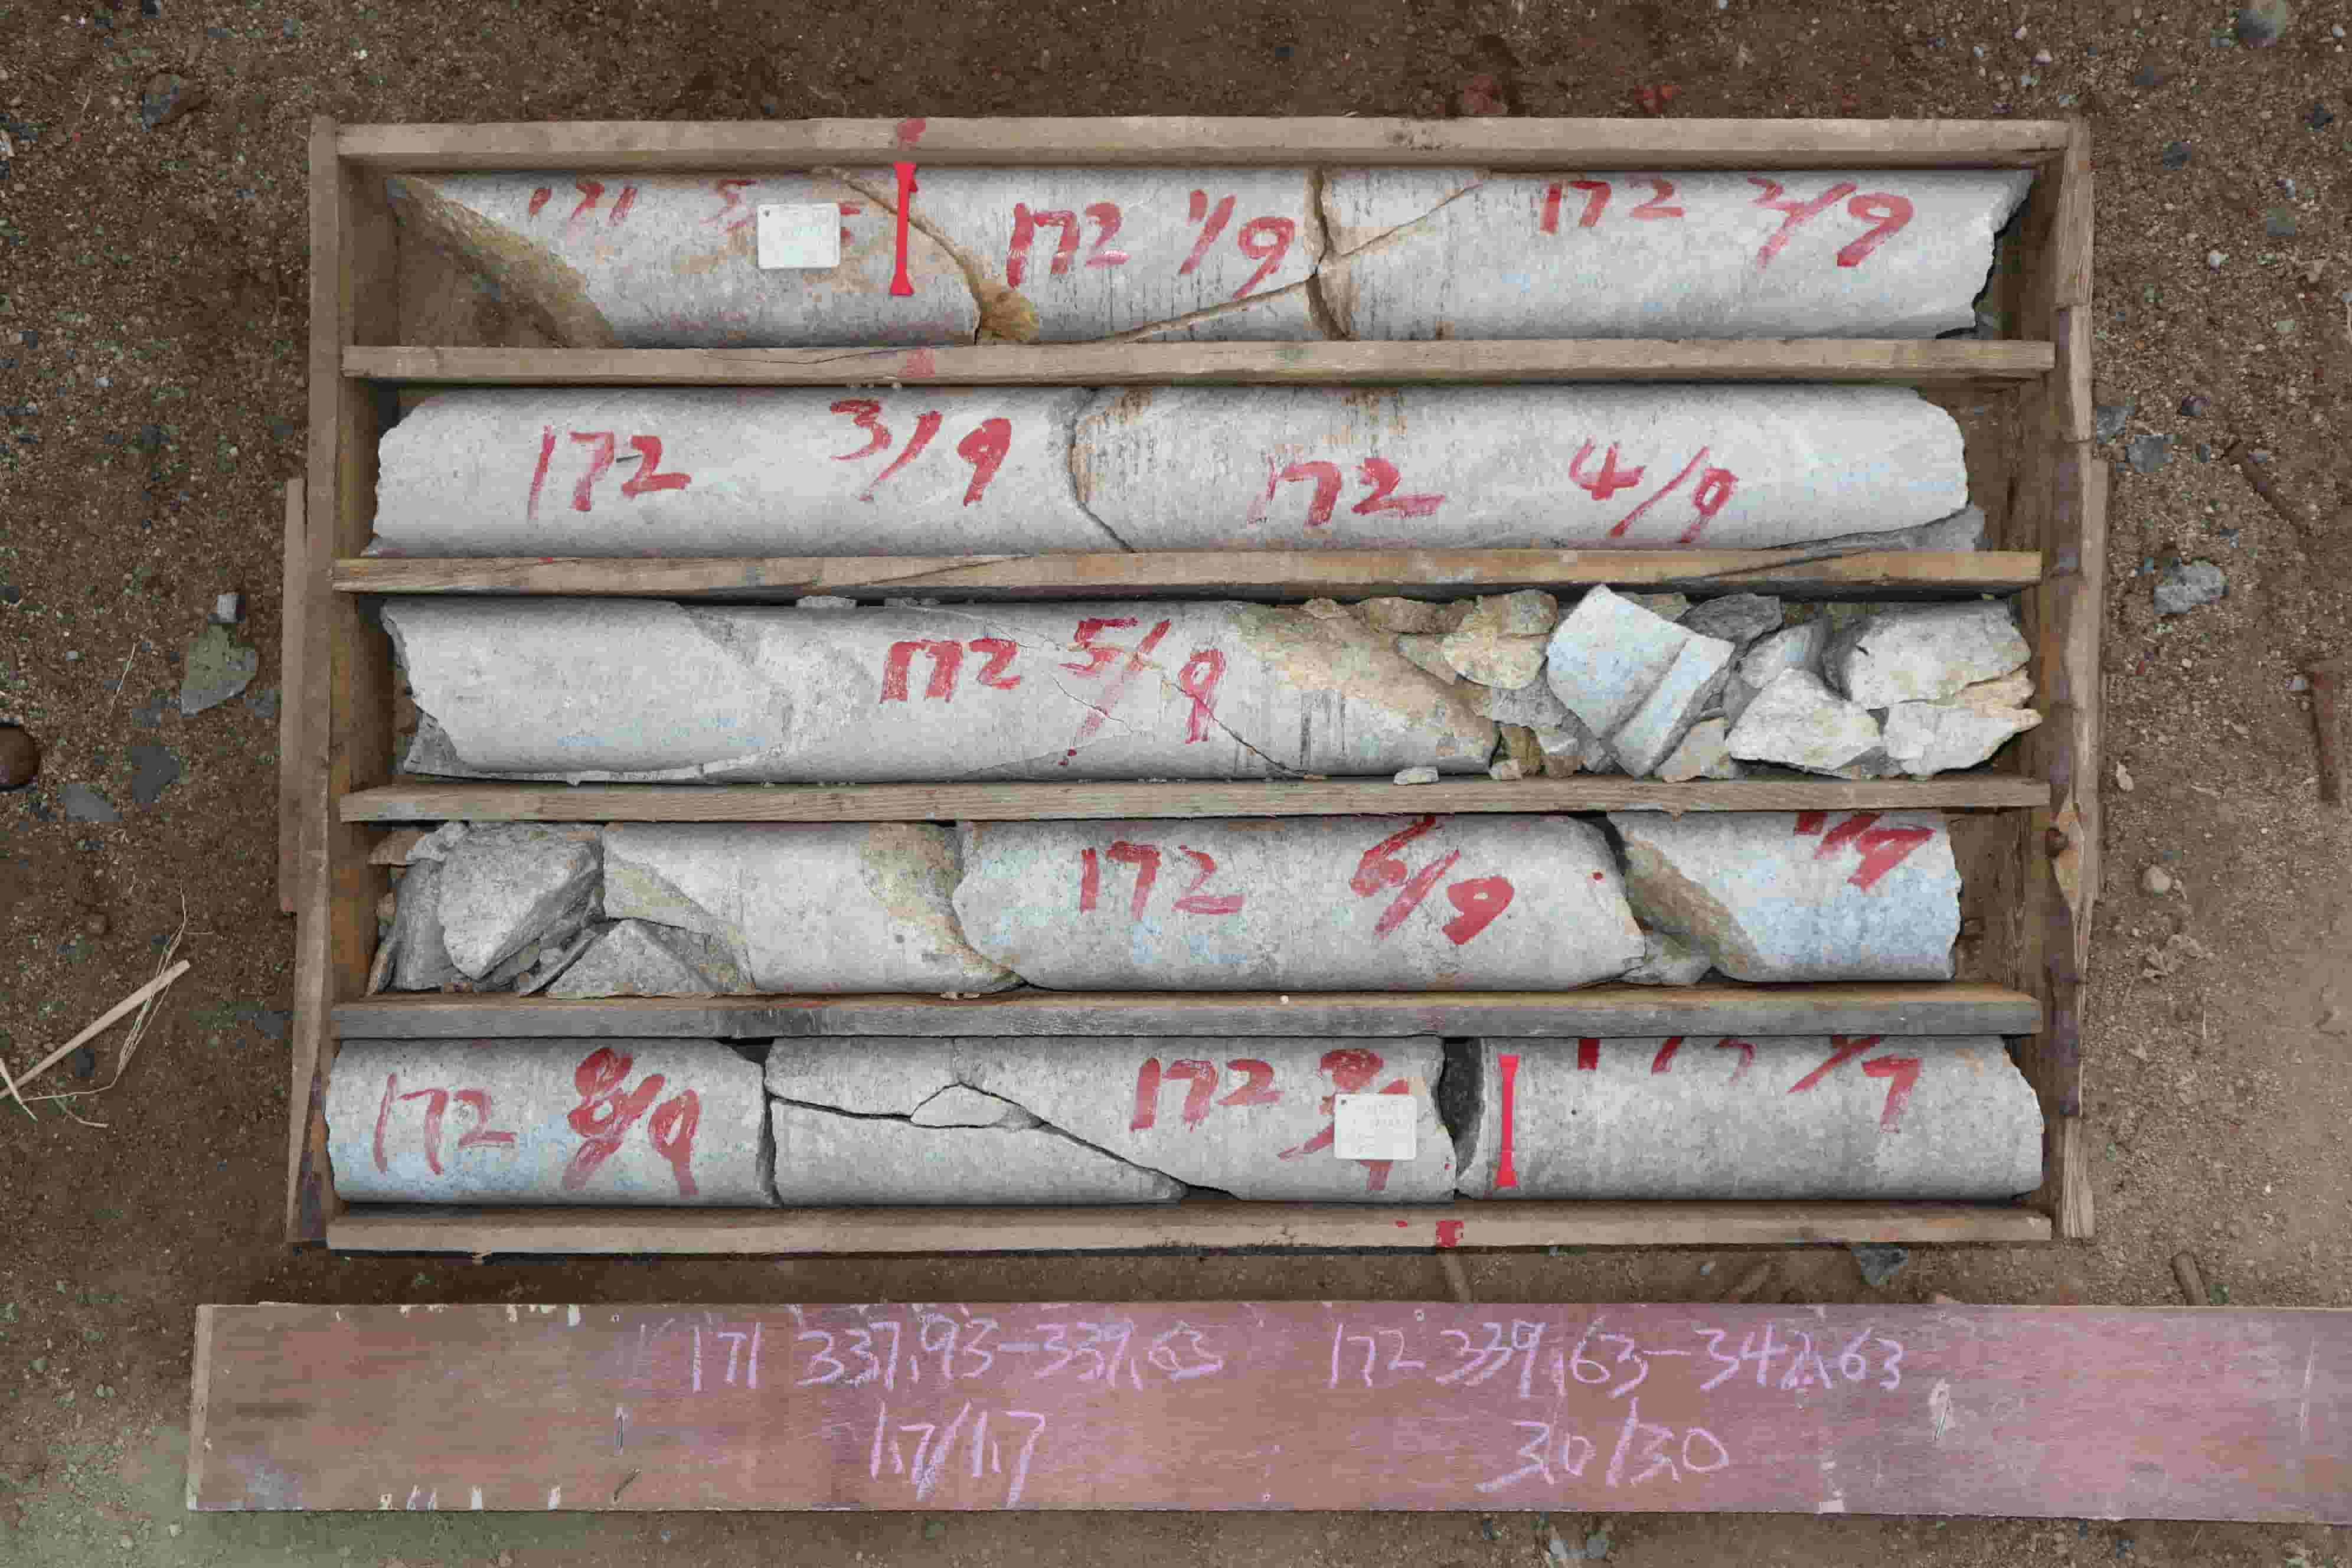 171 5
172 1/9
172 2/9
172 3/9
172 4/9
172 5/9
172 6/9
172 8/9
172
171 337.93-339.63
172 339.63-342.63
1.7/1.7
3.0/3.0